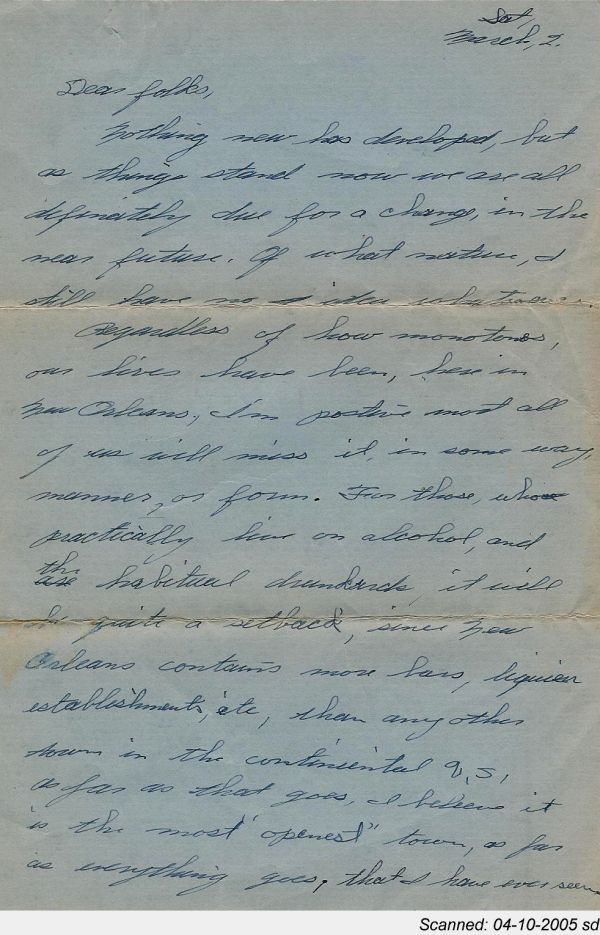 Sat,
March, 2.
Dear folks,
Nothing new has developed, but
as things stand now we are all
definately due for a change, in the
near future. Of what nature, I
still have no idea whatsoever.
Regardless of how monotonos,
our lives have been, here in
New Orleans, I'm positive most all
of us will miss it, in some way,
manner, or form. For those, who
practically live on alcohol, and
the
are habitual drunkards, it will
be quite a setback, since New
Orleans contains more bars, liquior
establishments, etc, than any other
town in the continental U.S.,
as far as that goes, I believe it
is the most "openest" town, as far
as everything goes, that I have ever seen
Scanned: 04-10-2005 sd